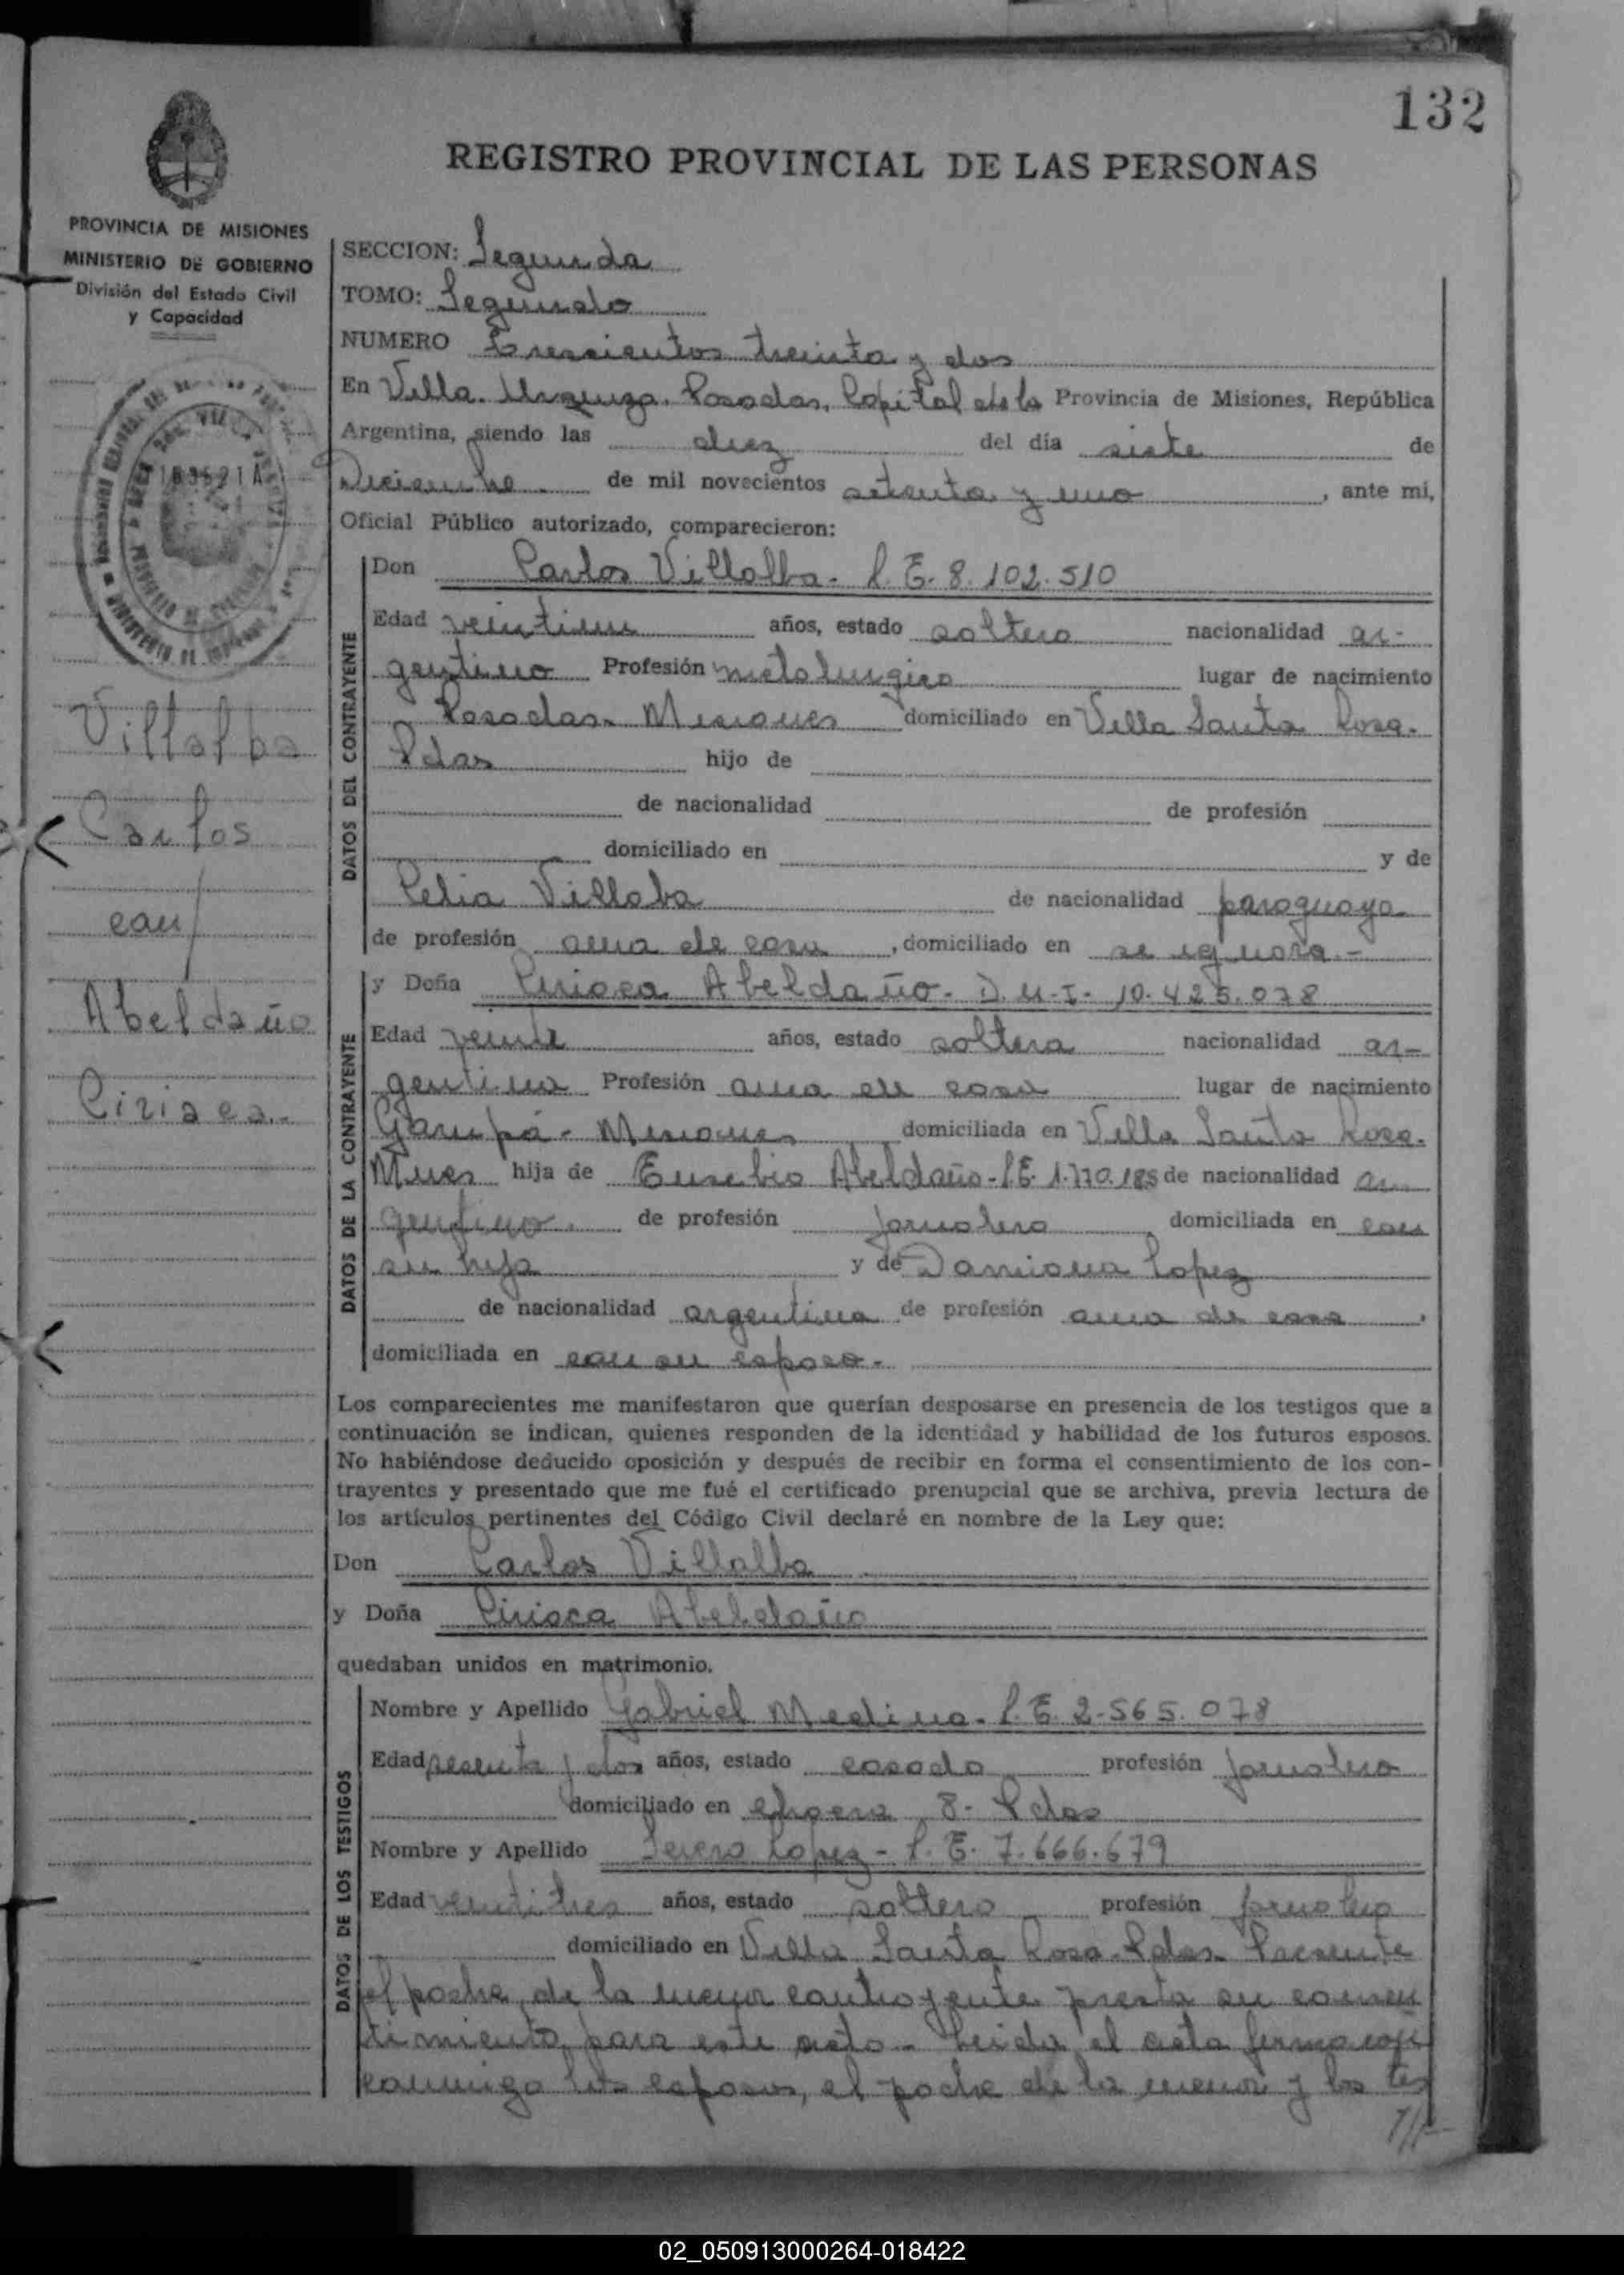 132
REGISTRO PROVINCIAL DE LAS PERSONAS
PROVINCIA DE MISIONES
MINISTERIO DE GOBIERNO
División del Estado Civil
y Capacidad
SECCION: Segunda
TOMO: Segundo
NUMERO Trescientos treinta y dos
En Villa Urquiza. Posadas, Capital de la Provincia de Misiones, República
Argentina, siendo las diez del día siete de
Diciembre de mil novecientos setenta y uno, ante mi,
Oficial Público autorizado, comparecieron:
DATOS DEL CONTRAYENTE
Don Carlos Villalba - L.E. 8.102.510
Edad veintiun años, estado soltero nacionalidad ar-
gentino Profesión metalurgico lugar de nacimiento
Posadas. Misiones domiciliado en Villa Santa Rosa.
Pdas hijo de
de nacionalidad de profesión
domiciliado en y de
Celia Villaba de nacionalidad paraguaya
de profesión ama de casa, domiciliado en se ignora.-
Villalba
Carlos
con
Abeldaño
Ciriaca.-
DATOS DE LA CONTRAYENTE
y Doña Ciriaca Abeldaño - D.N.I. 10.425.078
Edad veinte años, estado soltera nacionalidad ar-
gentina Profesión ama de casa lugar de nacimiento
Garupá - Misiones domiciliada en Villa Santa Rosa.
Mnes hija de Eusebio Abeldaño - L.E. 1.770.185 de nacionalidad ar-
gentino. de profesión jornalero domiciliada en con
su hija y de Damiana Lopez
de nacionalidad argentina de profesión ama de casa,
domiciliada en con su esposo.-
Los comparecientes me manifestaron que querían desposarse en presencia de los testigos que a
continuación se indican, quienes responden de la identidad y habilidad de los futuros esposos.
No habiéndose deducido oposición y después de recibir en forma el consentimiento de los con-
trayentes y presentado que me fué el certificado prenupcial que se archiva, previa lectura de
los artículos pertinentes del Código Civil declaré en nombre de la Ley que:
Don Carlos Villalba
y Doña Ciriaca Abeldaño
quedaban unidos en matrimonio.
DATOS DE LOS TESTIGOS
Nombre y Apellido Gabriel Medina - L.E. 2.565.078
Edad sesenta y dos años, estado casado profesión jornalero
domiciliado en chacra 8 - Pdas
Nombre y Apellido Severo Lopez - L.E. 7.666.679
Edad veintitres años, estado soltero profesión jornalero
domiciliado en Villa Santa Rosa. Pdas. Presente
el padre de la menor contrayente presta su consen
timiento para este acto - Leida el acta firman
conmigo los esposos, el padre de la menor y los tes
//-
02_050913000264-018422